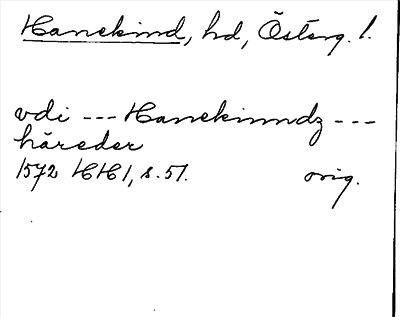 Hanekind, hd, Österg. l.
vdi --- Hanekinndz ---
häreder
1572 HH1, s. 51. orig.